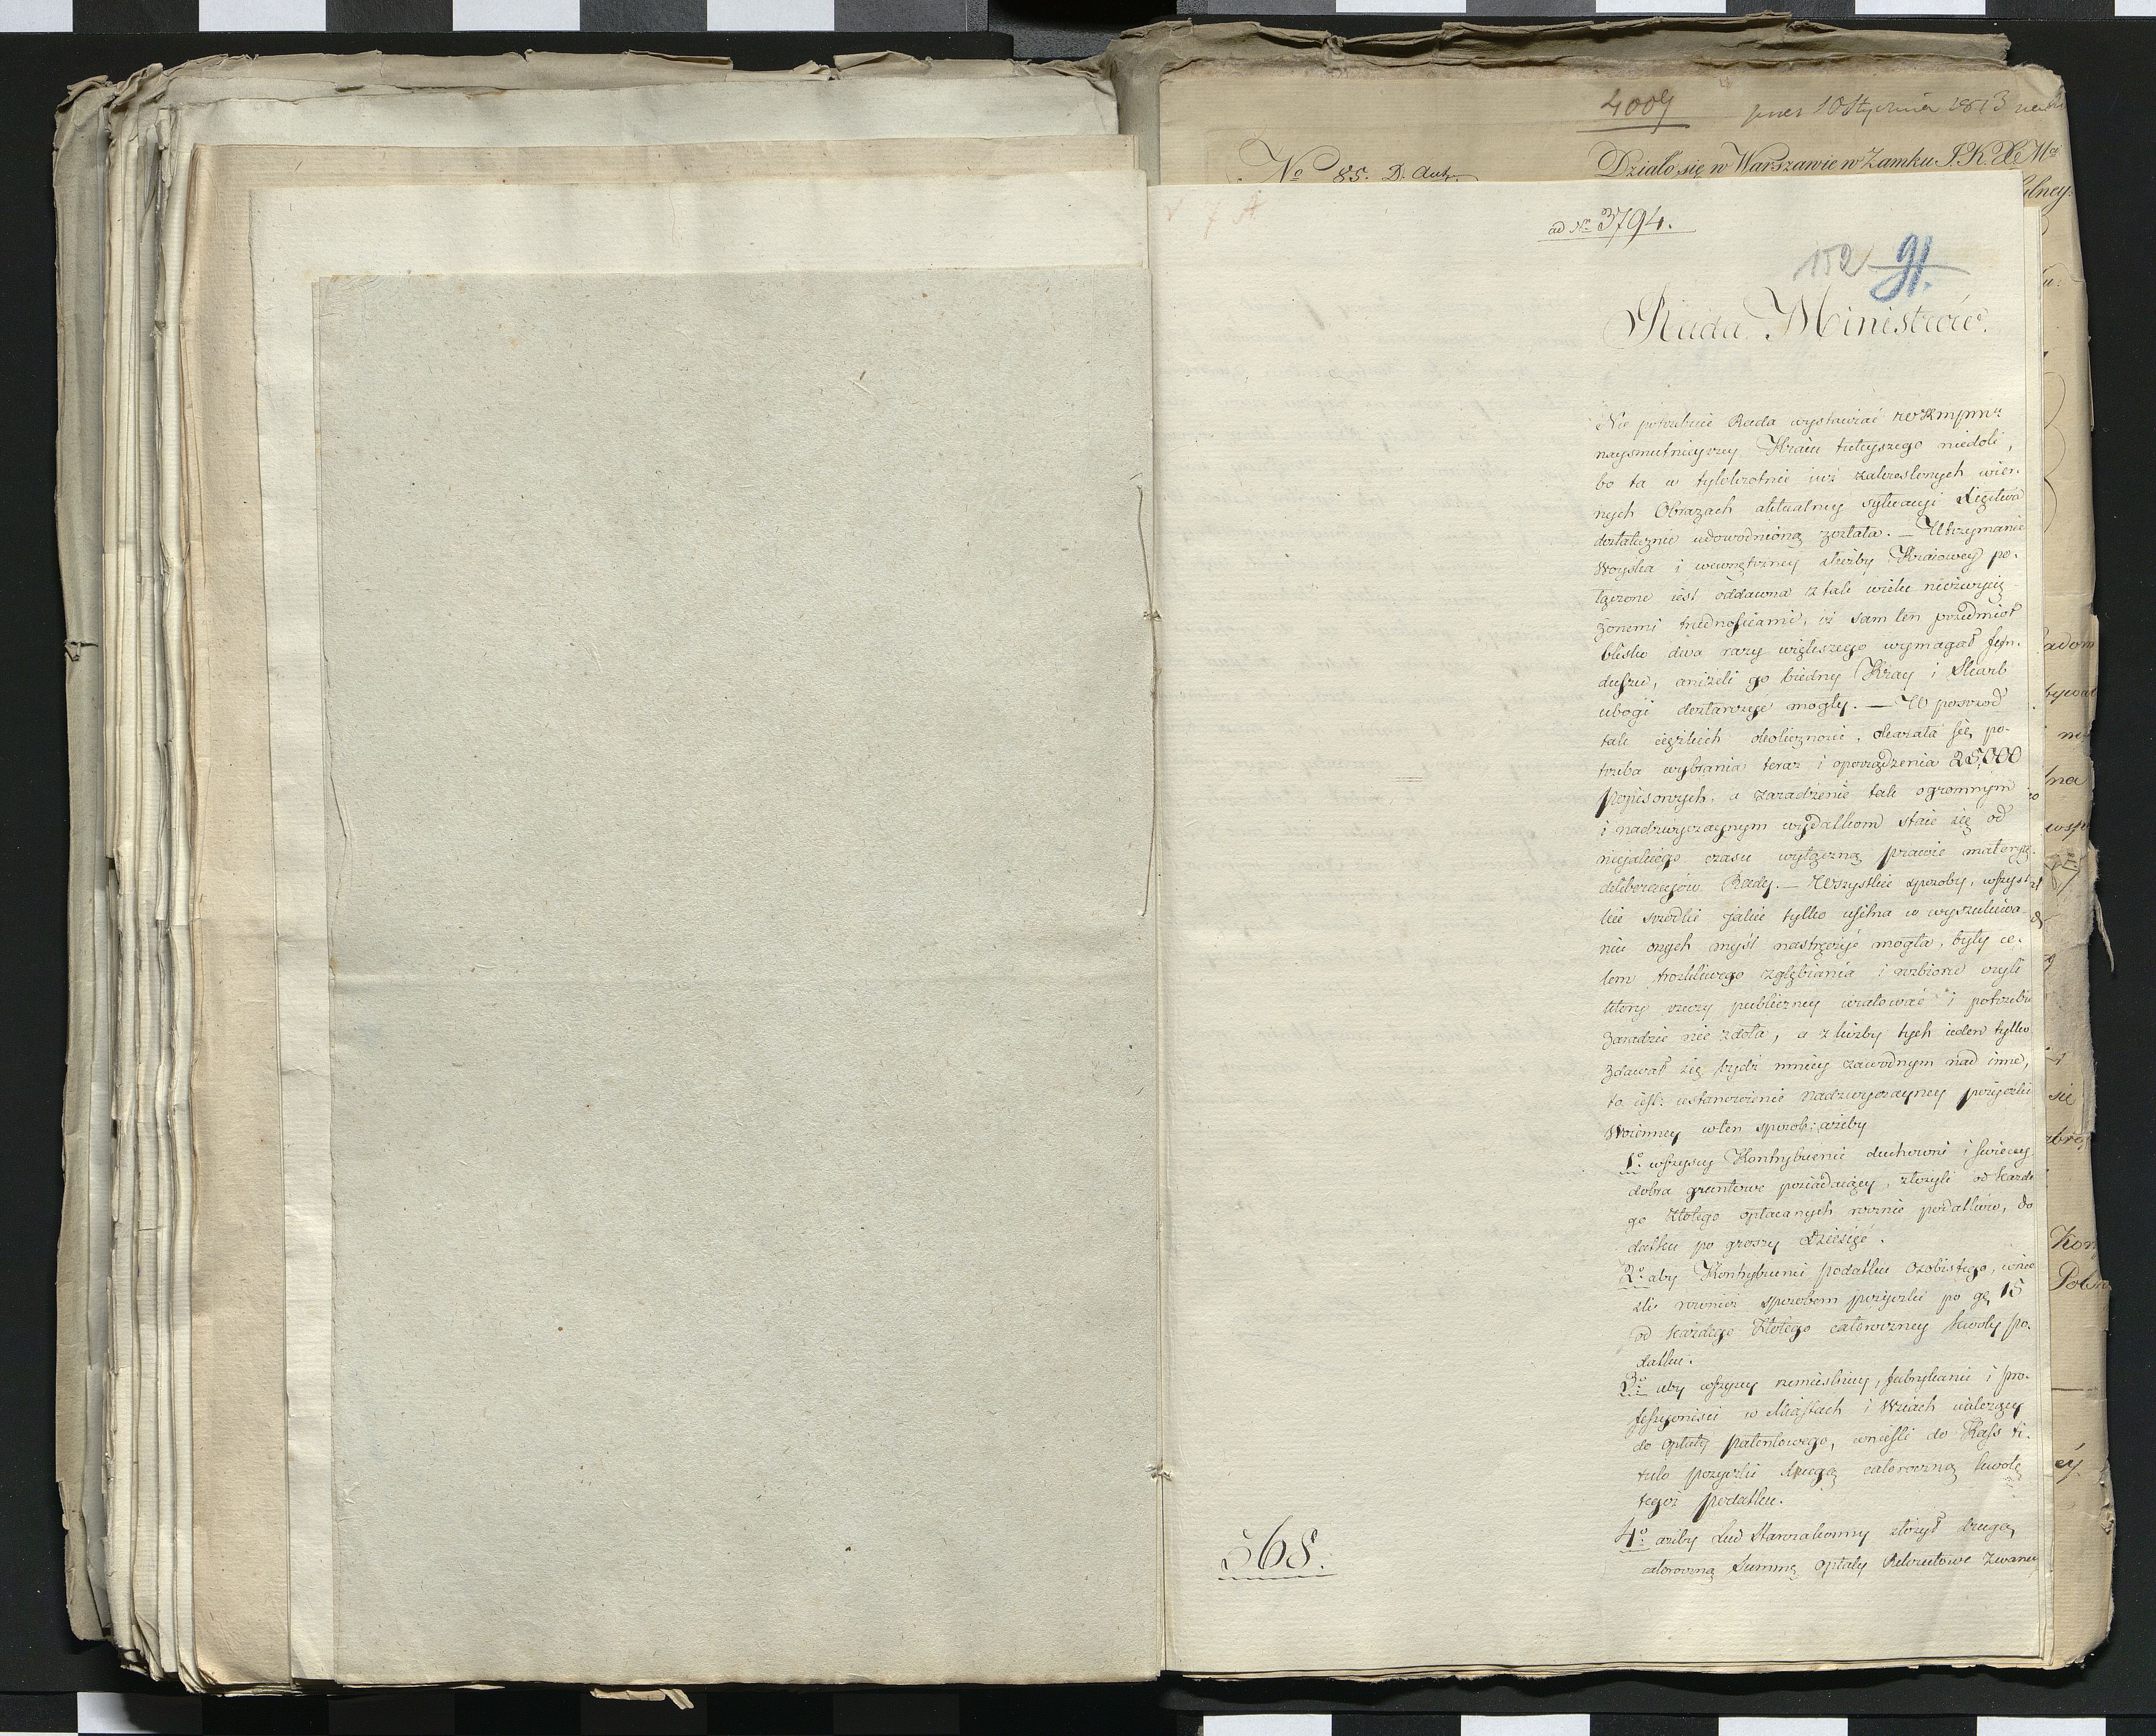 4009
10 Stycznia 1813
No 85. D. Aut.
Działo się w Warszawie w Zamku J. K. X Mci
ad No 3794.
152 91.
Rada Ministrów.
Nie potrzebuie Rada wystawiać
naysmutnieyszey Kraiu tuteyszego niedoli,
bo ta w tylokrotnie iuż zakreślonych wier-
nych Obrazach aktualney sytuacyi Xięstwa
dostatecznie udowodnioną została. — Utrzymanie
Woyska i wewnętrzney służby Kraiowey po-
łączone iest oddawna z tak wielu niezwycię-
żonemi trudnościami, iż sam ten przedmiot
blisko dwa razy większego wymagał fun-
duszu, aniżeli go biedny Kray i Skarb
ubogi dostarczyć mogły. — W pośrzód
tak ciężkich okoliczności, okazała się po-
trzeba wybrania teraz i oporządzenia 25,000
Popisowych, a zaradzenie tak ogromnym
i nadzwyczaynym wydatkom staie się od
nieiakiego czasu wyłączną prawie materyą
deliberacyów Rady. — Wszystkie sposoby, wszyst-
kie srzodki jakie tylko usilna w wyszukiwa-
niu onych myśl nastręczyć mogła, były ce-
lem troskliwego zgłębiania i rozbioru czyli
który rzeczy publiczney uratować i potrzebie
zaradzić nie zdoła, a z liczby tych ieden tylko
zdawał się bydź mniey zawodnym nad inne,
to iest: ustanowienie nadzwyczayney pożyczki
Woienney w ten sposob: ażeby
1o wszyscy Kontrybuenci duchowni i świeccy
dobra gruntowe posiadaiący, złożyli od każde
go Złotego opłacanych rocznie podatków, do
datku po groszy Dziesięć.
2o aby Kontrybuenci podatku Osobistego, wnie
śli rownież sposobem pożyczki po gr 15
od każdego Złotego całoroczney kwoty po-
datku.
3o aby wszyscy rzemieślnicy, fabrykanci i pro-
fessyoniści w Miastach i Wsiach należący
do Opłaty patentowego, wnieśli do Kass ti-
tulo pożyczki drugą całoroczną kwotę
tegoż podatku.
4o ażeby Lud Starozakonny złożył drugą
całoroczną Summę opłaty Rekrutowe zwaney
568.